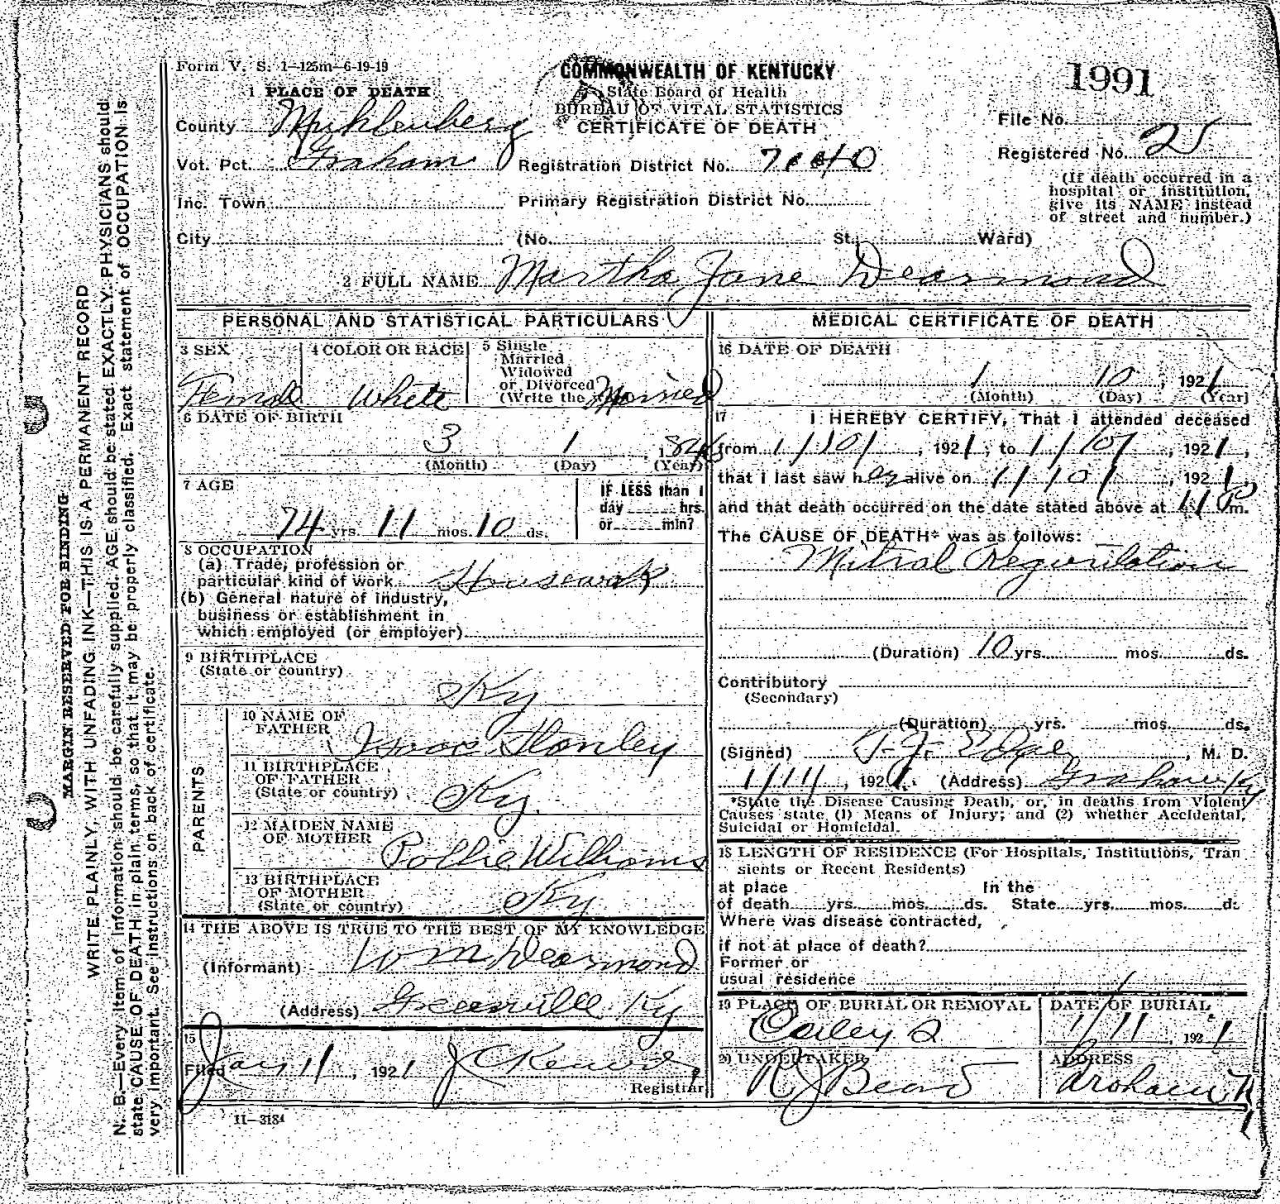 Form V. S. 1—125m—6-19-19
COMMONWEALTH OF KENTUCKY
State Board of Health
BUREAU OF VITAL STATISTICS
CERTIFICATE OF DEATH
1991
File No.
Registered No. 25
(If death occurred in a
hospital or institution,
give its NAME instead
of street and number.)
1 PLACE OF DEATH
County Muhlenberg
Vot. Pct. Graham
Registration District No. 7040
Inc. Town
Primary Registration District No.
City (No. St., Ward)
2 FULL NAME Martha Jane Dearmond
PERSONAL AND STATISTICAL PARTICULARS
3 SEX
Female
4 COLOR OR RACE
White
5 Single
Married
Widowed
or Divorced
(Write the Married
6 DATE OF BIRTH
3 1, 1846
(Month) (Day) (Year)
7 AGE
74 yrs. 11 mos. 10 ds.
IF LESS than 1
day hrs.
or min?
8 OCCUPATION
(a) Trade, profession or
particular kind of work Housework
(b) General nature of industry,
business or establishment in
which employed (or employer)
9 BIRTHPLACE
(State or country)
Ky
PARENTS
10 NAME OF
FATHER
Hanley
11 BIRTHPLACE
OF FATHER
(State or country)
Ky.
12 MAIDEN NAME
OF MOTHER
Pollie Williams
13 BIRTHPLACE
OF MOTHER
(State or country)
Ky
14 THE ABOVE IS TRUE TO THE BEST OF MY KNOWLEDGE
(Informant) Wm Dearmond
(Address) Greenville Ky
15
Filed Jan 11, 1921
Registrar
11—3184
MEDICAL CERTIFICATE OF DEATH
16 DATE OF DEATH
1 10, 1921
(Month) (Day) (Year)
17 I HEREBY CERTIFY, That I attended deceased
from 1/10/, 1921, to 1/10/, 1921,
that I last saw her alive on 1/10/, 1921
and that death occurred on the date stated above at m.
The CAUSE OF DEATH* was as follows:
Mitral Reguritation
(Duration) 10 yrs. mos. ds.
Contributory
(Secondary)
(Duration) yrs. mos. ds.
(Signed) T. J. , M. D.
1/11/, 1921. (Address) Graham Ky
*State the Disease Causing Death, or, in deaths from Violent
Causes state (1) Means of Injury; and (2) whether Accidental,
Suicidal or Homicidal.
18 LENGTH OF RESIDENCE (For Hospitals, Institutions, Tran
sients or Recent Residents)
at place In the
of death yrs. mos. ds. State yrs. mos. d:
Where was disease contracted,
if not at place of death?
Former or
usual residence
19 PLACE OF BURIAL OR REMOVAL
DATE OF BURIAL
1/11, 1921
20 UNDERTAKER
R J Beard
ADDRESS
Graham K
MARGIN RESERVED FOR BINDING
WRITE PLAINLY, WITH UNFADING INK—THIS IS A PERMANENT RECORD
N. B.—Every item of Information should be carefully supplied. AGE should be stated EXACTLY. PHYSICIANS should
state CAUSE OF DEATH in plain terms, so that it may be properly classified. Exact statement of OCCUPATION is
very important. See instructions on back of certificate.